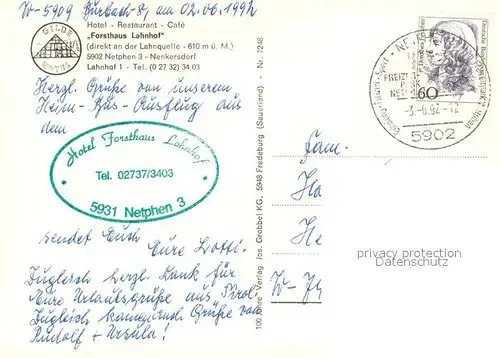 W-5909 Burbach-8, am 02.06.1992
Hotel - Restaurant - Café
„Forsthaus Lahnhof"
(direkt an der Lahnquelle - 610 m ü. M.)
5902 Netphen 3 - Nenkersdorf
Lahnhof 1 - Tel. (0 27 32) 34 03
GILDE
Herzl. Grüße von unserem
Heim-Bus-Ausflug aus
dem
Hotel Forsthaus Lahnhof
Tel. 02737/3403
5931 Netphen 3
sendet Euch
Eure Lotti.
Zugleich herzl. Dank für
Eure Urlaubsgrüße aus Tirol.
Zugleich Grüße von
Rudolf + Ursula!
100 Jahre Verlag Jos. Grobbel KG, 5948 Fredeburg (Sauerland) - Nr. 1248
Deutsche Bundespost
60
NETPHEN
FREIZEIT
PARK
-3.-6.92-12
5902
Fam.
Ha
He
W-
privacy protection
Datenschutz